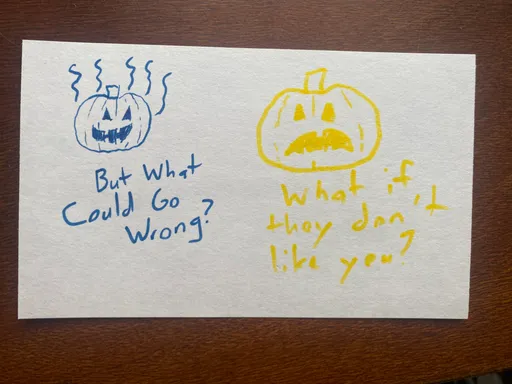 But What
Could Go
Wrong?
What if
they don't
like you?